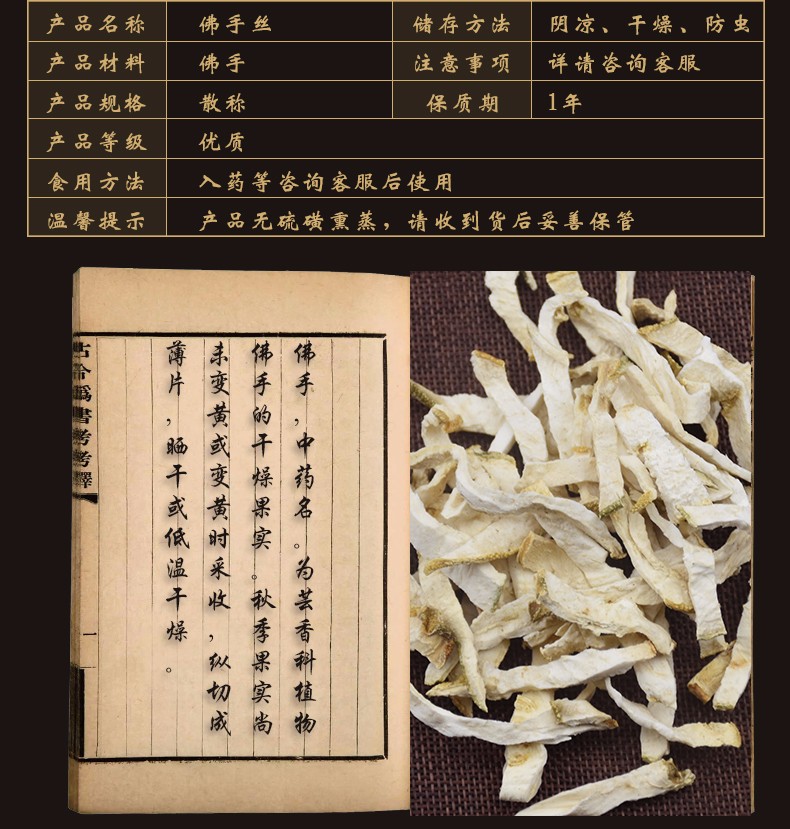 产品名称 佛手丝 储存方法 阴凉、干燥、防虫
产品材料 佛手 注意事项 详请咨询客服
产品规格 散称 保质期 1年
产品等级 优质
食用方法 入药等咨询客服后使用
温馨提示 产品无硫磺熏蒸，请收到货后妥善保管
佛手，中药名。为芸香科植物
佛手的干燥果实。秋季果实尚
未变黄或变黄时采收，纵切成
薄片，晒干或低温干燥。
古今爲書考考釋
一